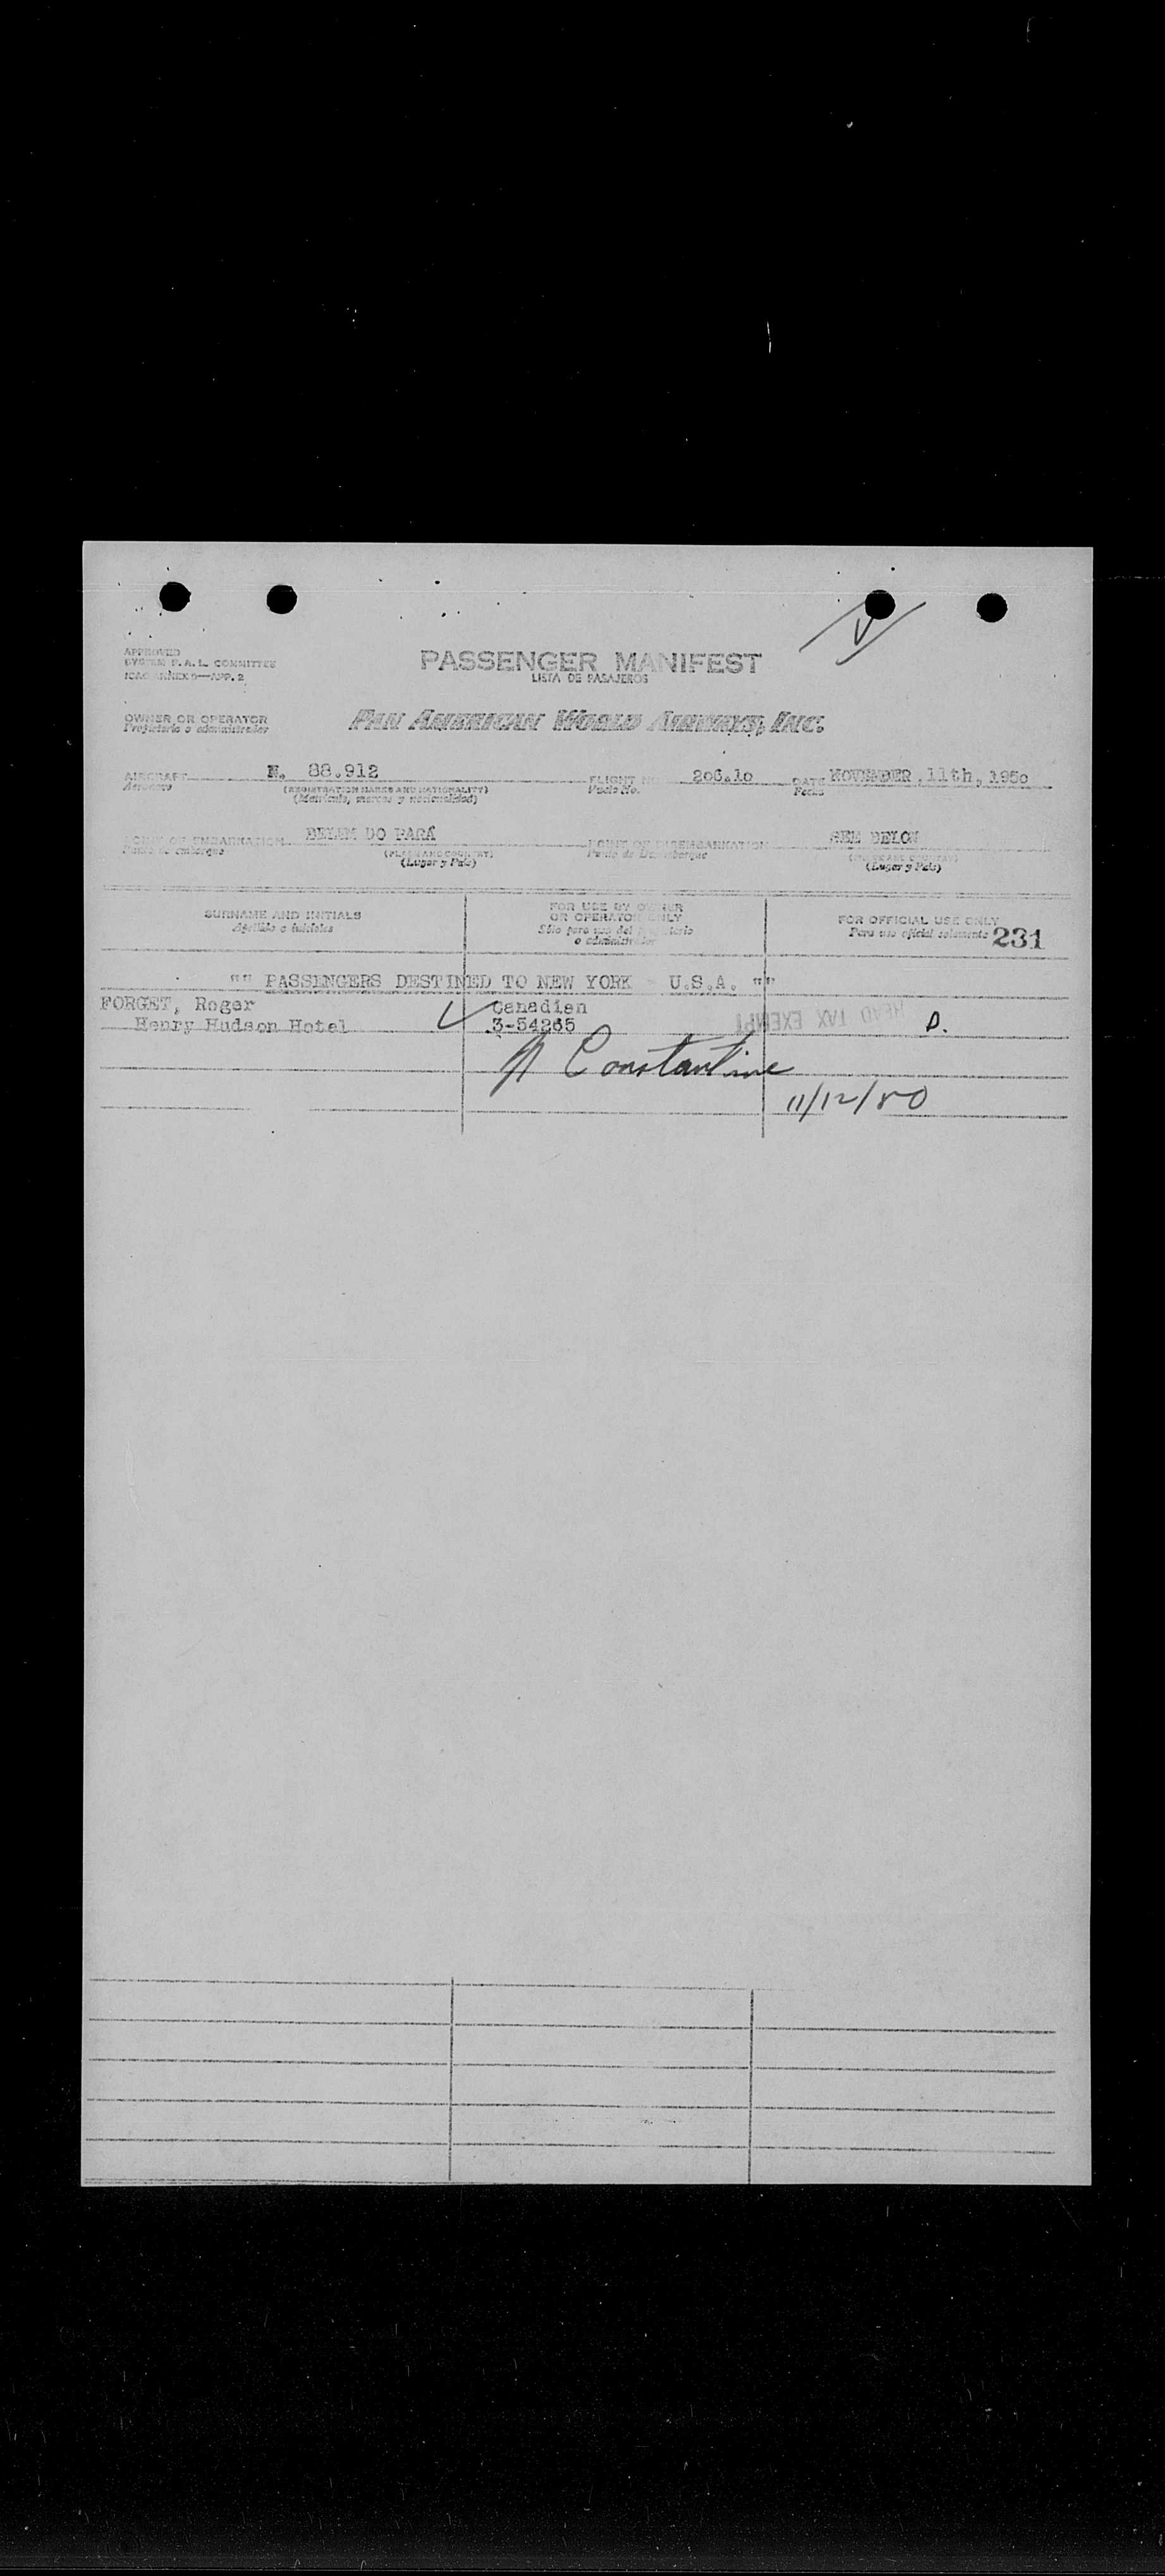 APPROVED
SYSTEM P.A.L. COMMITTEE
ICAO ANNEX 9—APP. 2
PASSENGER MANIFEST
LISTA DE PASAJEROS
OWNER OR OPERATOR
Propietario o administrador
PAN AMERICAN WORLD AIRWAYS, INC.
AIRCRAFT N. 88.912 FLIGHT NO. 206.10 DATE NOVEMBER, 11th, 1950
Aeronave (REGISTRATION MARKS AND NATIONALITY) Vuelo No. Fecha
(Matrícula, marcas y nacionalidad)
POINT OF EMBARKATION BELEM DO PARÁ POINT OF DISEMBARKATION SEE BELOW
Punto de embarque (PLACE AND COUNTRY) Punto de Desembarque (PLACE AND COUNTRY)
(Lugar y País) (Lugar y País)
SURNAME AND INITIALS
Apellido e iniciales
FOR USE BY OWNER
OR OPERATOR ONLY
Sólo para uso del propietario
o administrador
FOR OFFICIAL USE ONLY
Para uso oficial solamente 231
"" PASSENGERS DESTINED TO NEW YORK - U.S.A. ""
FORGET, Roger Canadian
Henry Hudson Hotel 3-54265 HEAD TAX EXEMPT D.
Constantine
11/12/50